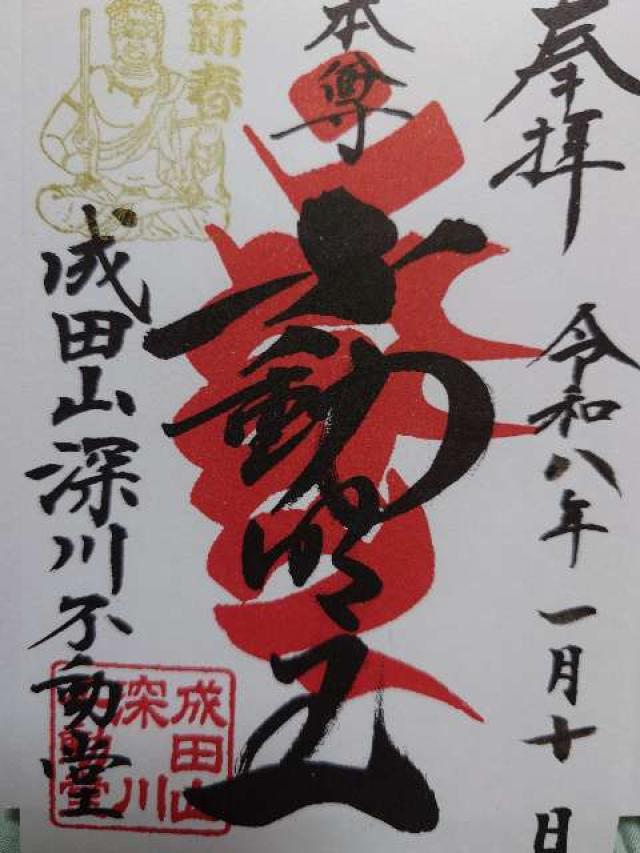 奉拝
令和八年一月十日
本尊
不動明王
新春
成田山深川不動堂
成田山
深川